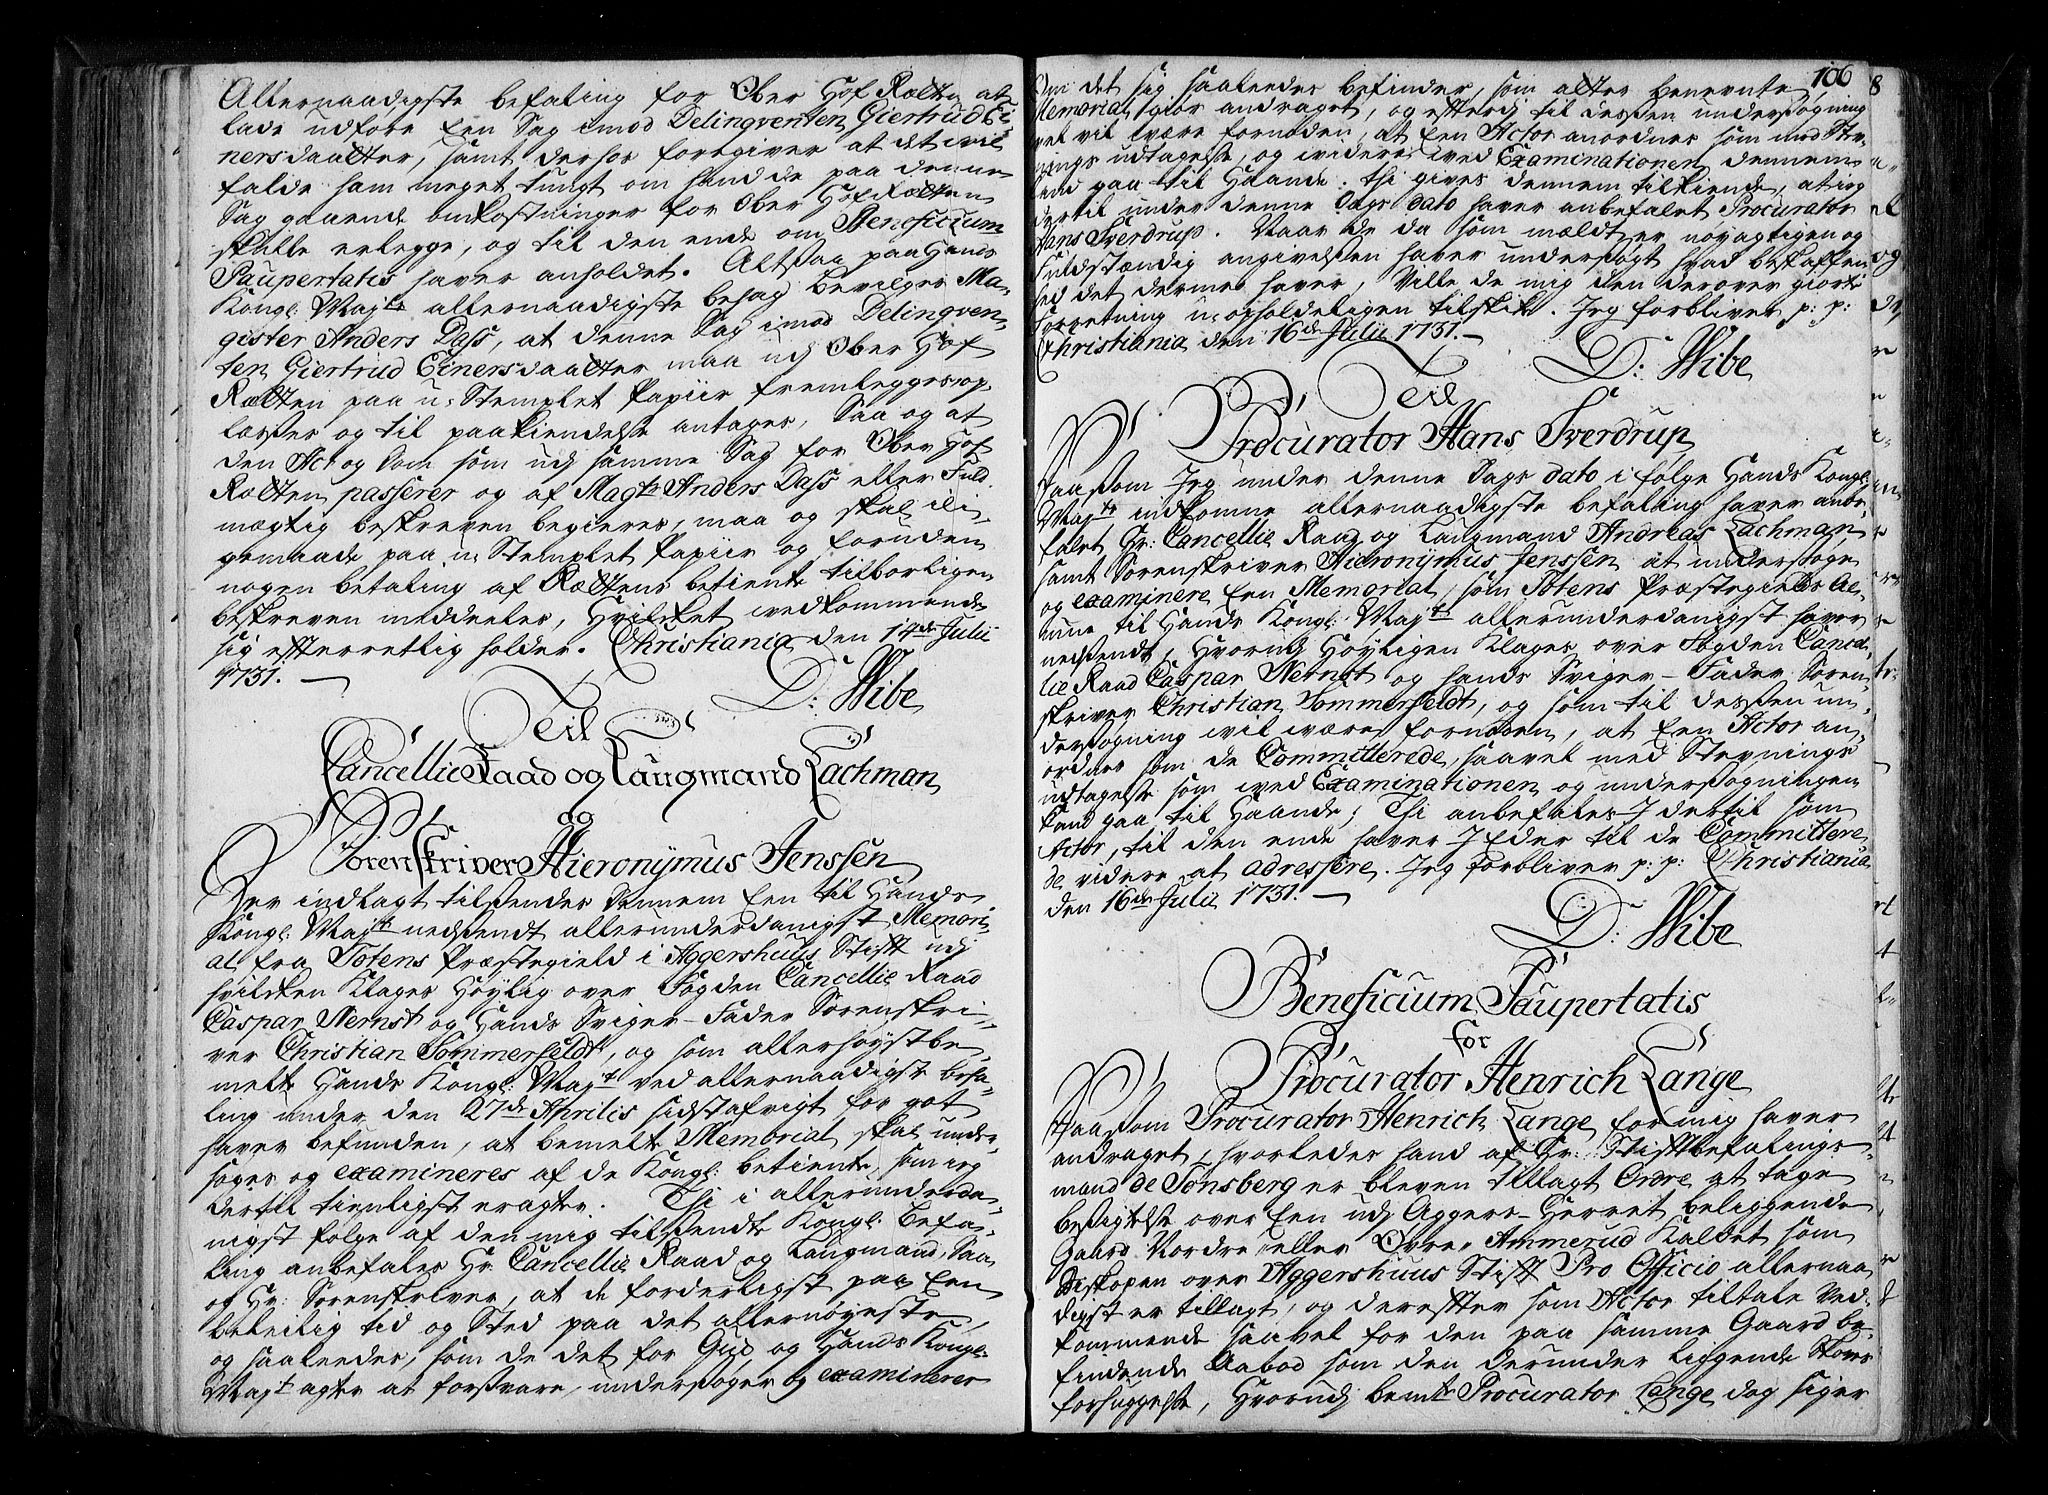 Allernaadigste befaling for Ober Hof Rætten at
lade udføre Een Sag imod Delinqventen Giertrud Ei-
nersdaatter, samt derhos foregiver at det vil
falde ham meget tungt om hand de paa denne
Sag gaaende omkostninger for Ober Hof Rætten
skulle erlegge, og til den ende om Beneficium
Paupertatis haver anholdet. Altsaa paa Hands
Kongl: Mayts allernaadigste behag bevilges Ma-
gister Anders Dass, at denne Sag imod Delinqven-
ten Giertrud Einersdaatter maa udj Ober Hof
Rætten paa u-Stemplet Papiir fremlegges op-
læses og til paakiendelse antages, Saa og at
den Act og Dom som udj samme Sag for Ober Hof
Rætten passerer og af Magr Anders Dass eller Fuld-
mægtig beskreven begieres, maa og skal lii-
gemaade paa u-Stemplet Papiir og foruden
nogen betaling af Rættens betiente tilbørligen
beskreven meddeeles, Hvilket vedkommende
sig efterrettlig holder. Christiania den 14de Julii
1731.
D: Wibe
Til
Cancellie Raad og Laugmand Lachman
og
Sorenskriver Hieronymus Jenssen
Her indlagt tilsendes dennem Een til Hands
Kongl: Mayt nedsendt allerunderdanigst Memori-
al fra Totens Præstegield i Aggershuus Stift udj
hvilken Klages Høylig over Fogden Cancellie Raad
Caspar Nernst og Hands Sviger-Fader Sorenskri-
ver Christian Sommerfeldt, og som allerhøystbe-
melte Hands Kongl: Mayt ved allernaadigst befa-
ling under den 27de Aprilis sidstafvigt for got
haver befunden, at bemelte Memorial skal under-
søges og examineres af de Kongl: betiente, som ieg
dertil tienligst eragter. Thi i allerunderda-
nigst følge af den mig tilsendte Kongl: Befa-
ling anbefales Hr Cancellie Raad og Laugmand, Saa
og Hr: Sorenskriver, at de forderligst paa Een
beleilig tid og Sted paa det allernøyeste
og saaleedes, som de det for Gud og Hands Kongl:
Mayt agter at forsvare, undersøger og examinerer
106
Om det sig saaleedes befinder, som alt benevnte
Memorial giør andraget, og efterdj til dessen undersøgning
vel vil være fornøden, at Een Actor anordnes som med Stev-
nings udtagelse, og videre ved Examinationen dennem
kand gaa til Haande: thi gives dennem tilkiende, at ieg
dertil under denne Dags dato haver anbefalet Procurator
Hans Sverdrup. Naar de da som meldt er nøyagtigen og
fuldstændig angivelsen haver undersøgt hvad beskaffen-
hed det dermed haver, Ville de mig den derover giorte
forretning u-opholdeligen tilskik. Jeg forbliver p: p:
Christiania den 16de Julii 1731.
D: Wibe
Til
Procurator Hans Sverdrup
Saasom Jeg under denne Dags dato i følge Hands Kongl:
Mayts indkomne allernaadigste befaling haver anbe-
falet Hr: Cancellie Raad og Laugmand Andreas Lachman
samt Sorenskriver Hieronymus Jenssen at undersøge
og examinere Een Memorial, som Totens Præstegields Al-
mue til Hands Kongl: Mayt allerunderdanigst haver
nedsendt, Hvorudj Høyligen Klages over Fogden Cancel-
lie Raad Caspar Nernst og hands Sviger-Fader Soren-
skriver Christian Sommerfeldt, og som til dessen un-
dersøgning vil være fornøden, at Een Actor an-
ordnes som de Committerede, saavel med Stevnings
udtagelse som ved Examinationen og undersøgningen
kand gaa til Haande; Thi anbefales I dertil som
Actor, til den ende haver I Eder til de Committere-
de videre at adressere. Jeg forbliver p: p: Christiania
den 16de Julii 1731.
D: Wibe
Beneficium Paupertatis
for
Procurator Henrich Lange
Saasom Procurator Henrich Lange for mig haver
andraget, hvorledes hand af Hr: Stiftbefalings-
mand de Tonsberg er bleven tillagt Ordre at tage
besigtelse over Een udj Aggers-Herret beliggende
Gaard Nordre eller Øvre Ammerud Kaldet som
Biskopen over Aggershuus Stift Pro Officio allernaa-
digst er tillagt, og derefter som Actor tiltale Ved-
kommende saavel for den paa samme Gaard be-
findende Aabod som den derunder liggende Skovs
forhuggelse, Hvorudj bemte Procurator Lange dog siger